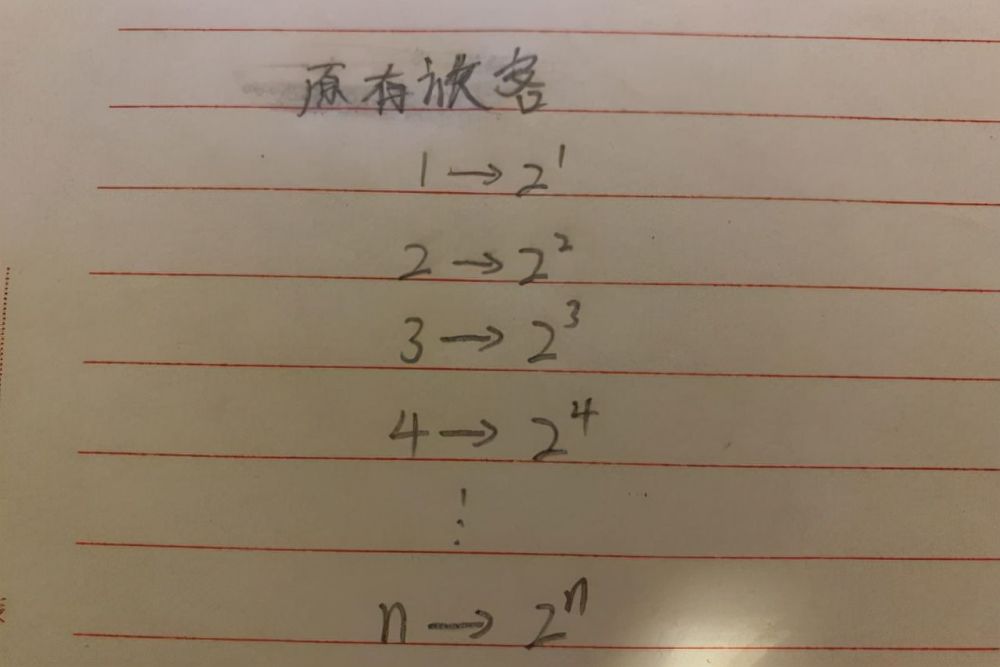 原有旅客
1→2¹
2→2²
3→2³
4→2⁴
⋮
n→2ⁿ